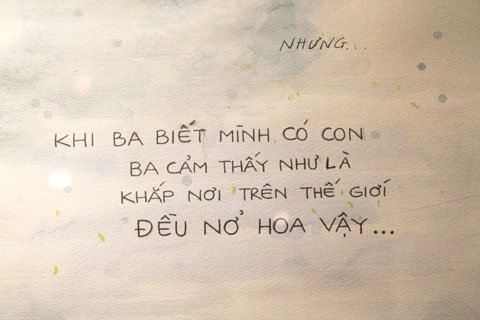 NHƯNG...
KHI BA BIẾT MÌNH CÓ CON
BA CẢM THẤY NHƯ LÀ
KHẮP NƠI TRÊN THẾ GIỚI
ĐỀU NỞ HOA VẬY...